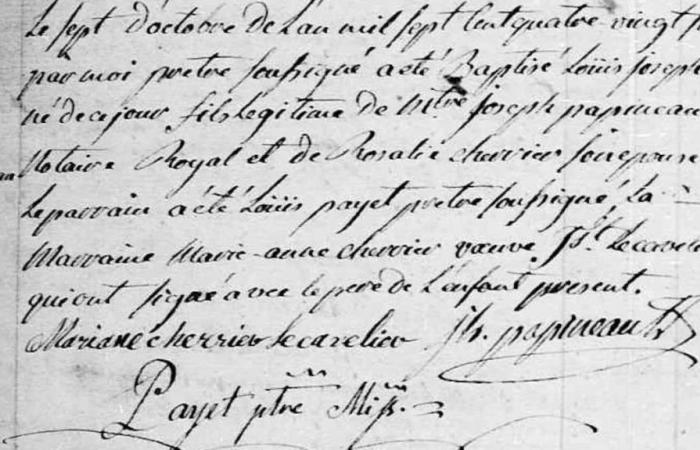 Le sept d'octobre de L'an mil sept Cent quatre vingt
par moi pretre soussigné a eté Baptisé Loüis joseph
né de ce jour fils Légitime de Mtre joseph papineau
Notaire Royal et de Rosalie cherrier son epouse
Le parrain a été Loüis payet pretre soussigné, La
Marraine Marie-anne cherrier vœuve Jst. Lecavelie
qui ont signé avec le pere de L'enfant present.
Mariane cherrier Lecavelier Jh. papineau
Payet ptre Miss.